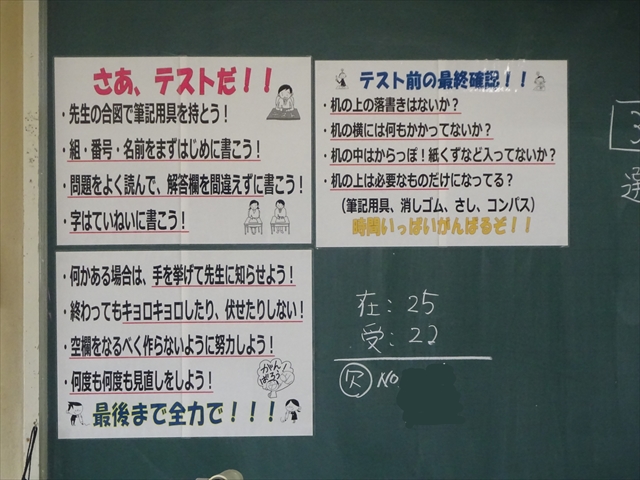 さあ、テストだ！！
・先生の合図で筆記用具を持とう！
・組・番号・名前をまずはじめに書こう！
・問題をよく読んで、解答欄を間違えずに書こう！
・字はていねいに書こう！
テスト前の最終確認！！
・机の上の落書きはないか？
・机の横には何もかかってないか？
・机の中はからっぽ！紙くずなど入ってないか？
・机の上は必要なものだけになってる？
（筆記用具、消しゴム、さし、コンパス）
時間いっぱいがんばるぞ！！
・何かある場合は、手を挙げて先生に知らせよう！
・終わってもキョロキョロしたり、伏せたりしない！
・空欄をなるべく作らないように努力しよう！
・何度も何度も見直しをしよう！
がんばろう
最後まで全力で！！！
在：25
受：22
欠 NO